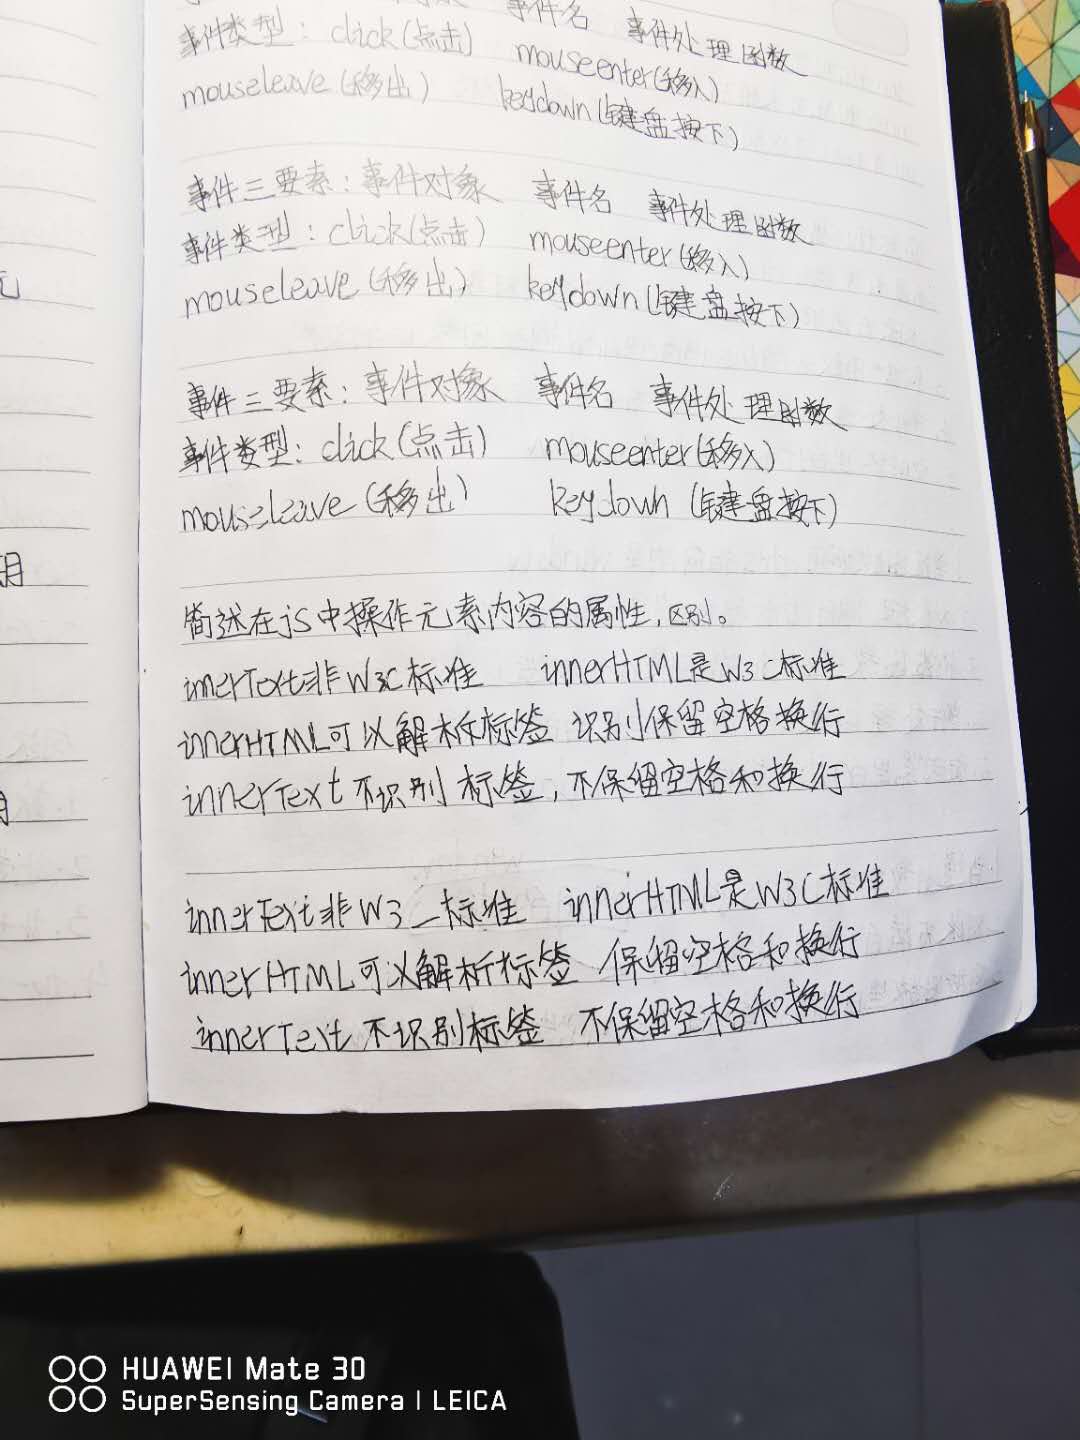 事件名 事件处理函数
事件类型：click(点击) mouseenter(移入)
mouseleave(移出) keydown(键盘按下)
事件三要素：事件对象 事件名 事件处理函数
事件类型：click(点击) mouseenter(移入)
mouseleave(移出) keydown(键盘按下)
事件三要素：事件对象 事件名 事件处理函数
事件类型：click(点击) mouseenter(移入)
mouseleave(移出) keydown(键盘按下)
简述在js中操作元素内容的属性，区别。
innerText非W3C标准 innerHTML是W3C标准
innerHTML可以解析标签 识别保留空格换行
innerText不识别标签，不保留空格和换行
innerText非W3_标准 innerHTML是W3C标准
innerHTML可以解析标签 保留空格和换行
innerText不识别标签 不保留空格和换行
元
用
HUAWEI Mate 30
SuperSensing Camera | LEICA